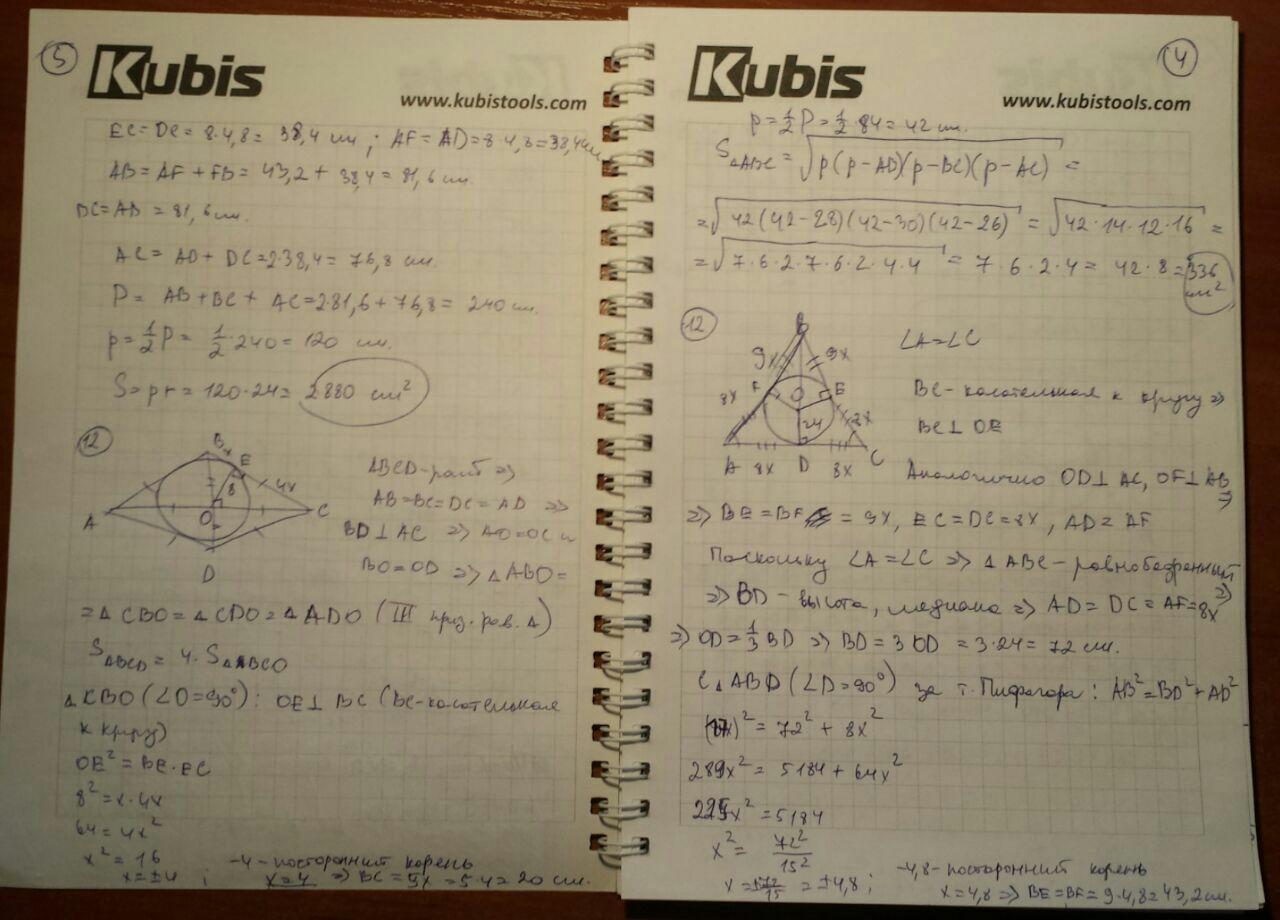 5
Kubis
www.kubistools.com
EC = DC = 8·4,8 = 38,4 см ; AF = AD = 8·4,8 = 38,4 см
AB = AF + FB = 43,2 + 38,4 = 81,6 см.
DC = AB = 81,6 см.
AC = AD + DC = 2·38,4 = 76,8 см.
P = AB + BC + AC = 2·81,6 + 76,8 = 240 см.
p = 1/2 P = 1/2 · 240 = 120 см.
S = pr = 120·24 = 2880 см²
12
B
x
E
4x
8
A
O
C
D
ABCD - ромб =>
AB = BC = DC = AD =>
BD ⊥ AC => AO = OC и
BO = OD => △ABO =
= △CBO = △CDO = △ADO (III приз. рав. △)
S ABCD = 4·S △BCO
△CBO (∠O = 90°): OE ⊥ BC (BC - касательная
к кругу)
OE² = BE·EC
8² = x·4x
64 = 4x²
x² = 16
x = ±4 ;
-4 - посторонний корень
x = 4 => BC = 5x = 5·4 = 20 см.
4
Kubis
www.kubistools.com
p = 1/2 P = 1/2 · 84 = 42 см.
S △ABC = √p(p-AD)(p-BC)(p-AC) =
= √42(42-28)(42-30)(42-26) = √42·14·12·16 =
= √7·6·2·7·6·2·4·4 = 7·6·2·4 = 42·8 = 336 см²
12
B
9x
9x
F
O
E
8x
24
8x
A
8x
D
8x
C
∠A = ∠C
BC - касательная к кругу =>
BC ⊥ OE
Аналогично OD ⊥ AC, OF ⊥ AB =>
=> BE = BF = 9x, EC = DC = 8x, AD = AF
Поскольку ∠A = ∠C => △ABC - равнобедренный =>
=> BD - высота, медиана => AD = DC = AF = 8x
=> OD = 1/3 BD => BD = 3 OD = 3·24 = 72 см.
С △ABD (∠D = 90°) за т. Пифагора: AB² = BD² + AD²
(17x)² = 72² + 8x²
289x² = 5184 + 64x²
225x² = 5184
x² = 72²/15²
x = ±72/15 = ±4,8 ;
-4,8 - посторонний корень
x = 4,8 => BE = BF = 9·4,8 = 43,2 см.